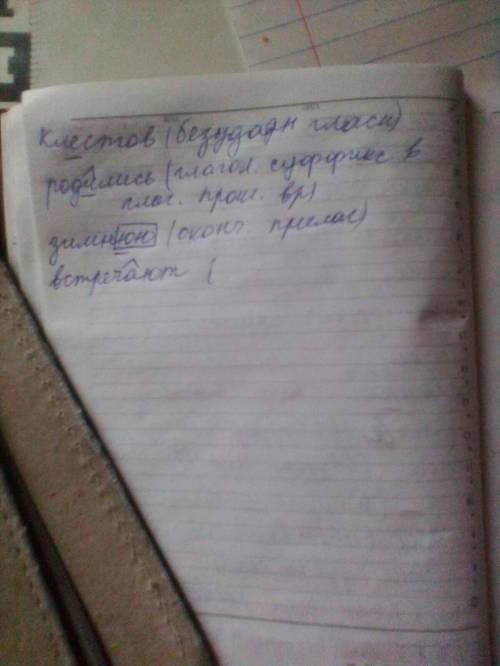 клестов (безударн гласн)
родились (глагол. суффикс в
глаг. прош. вр)
зимнюю (оконч прилаг)
встречают (